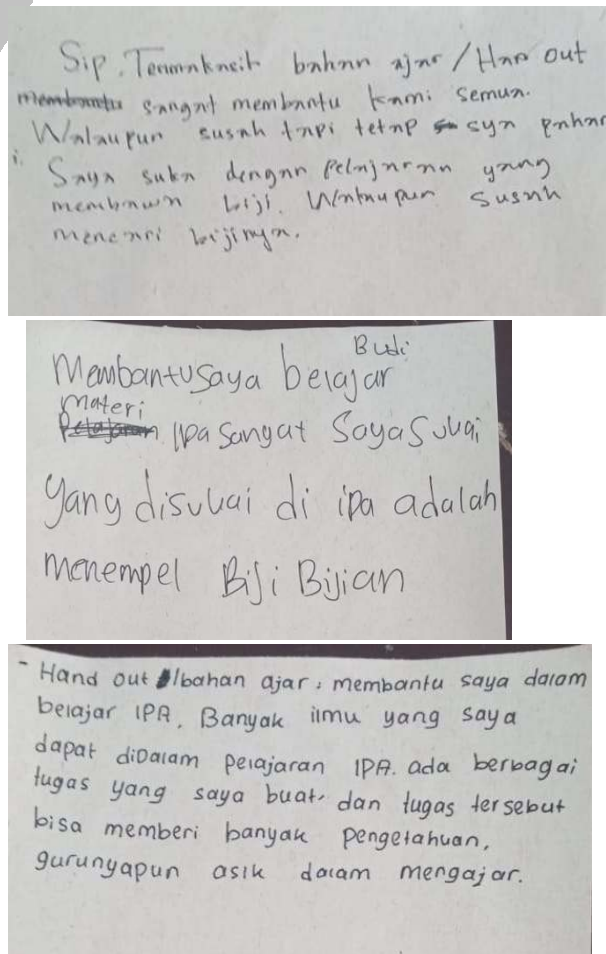 Sip, Terimakasih bahan ajar / Han out
membantu sangat membantu kami semua.
Walaupun susah tapi tetap sya paham
Saya suka dengan Pelajaran yang
membawa biji. Walaupun susah
mencari bijinya.
Budi
Membantu saya belajar
Materi
Pelajaran Ipa Sangat Saya Sukai
yang disukai di ipa adalah
menempel BiJi Bijian
- Hand out /bahan ajar, membantu saya dalam
belajar IPA. Banyak ilmu yang saya
dapat diDalam pelajaran IPA. ada berbagai
tugas yang saya buat, dan tugas tersebut
bisa memberi banyak pengetahuan,
gurunyapun asik dalam mengajar.